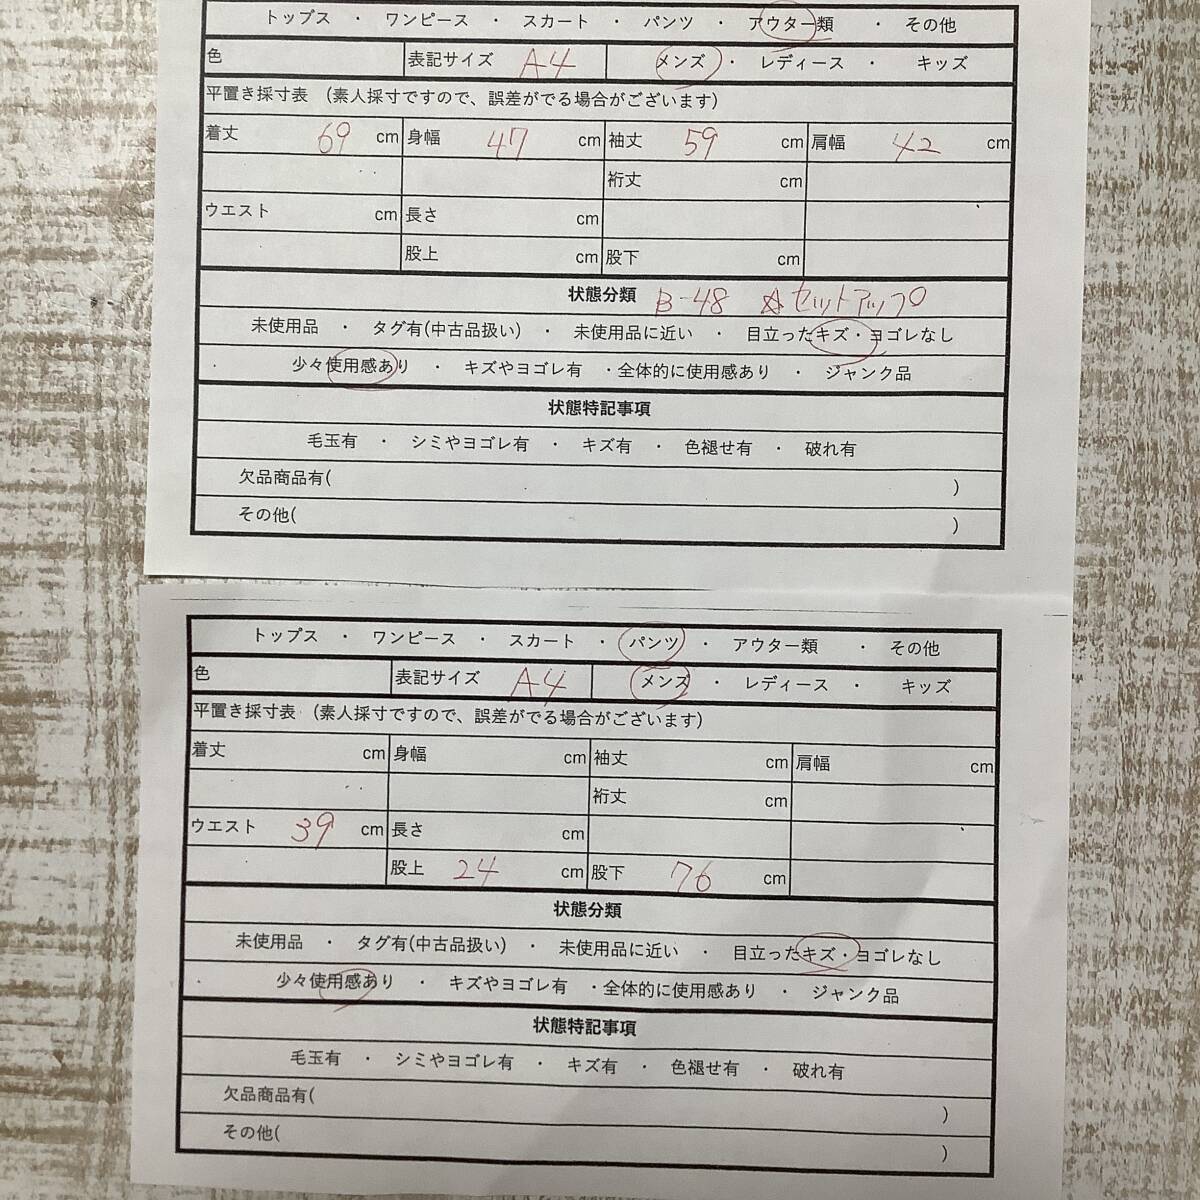 トップス ・ ワンピース ・ スカート ・ パンツ ・ アウター類 ・ その他
色 表記サイズ A4 メンズ ・ レディース ・ キッズ
平置き採寸表 (素人採寸ですので、誤差がでる場合がございます)
着丈 69 cm 身幅 47 cm 袖丈 59 cm 肩幅 42 cm
裄丈 cm
ウエスト cm 長さ cm
股上 cm 股下 cm
状態分類 B-48 ☆セットアップ
未使用品 ・ タグ有(中古品扱い) ・ 未使用品に近い ・ 目立ったキズ・ヨゴレなし
少々使用感あり ・ キズやヨゴレ有 ・全体的に使用感あり ・ ジャンク品
状態特記事項
毛玉有 ・ シミやヨゴレ有 ・ キズ有 ・ 色褪せ有 ・ 破れ有
欠品商品有( )
その他( )
トップス ・ ワンピース ・ スカート ・ パンツ ・ アウター類 ・ その他
色 表記サイズ A4 メンズ ・ レディース ・ キッズ
平置き採寸表 (素人採寸ですので、誤差がでる場合がございます)
着丈 cm 身幅 cm 袖丈 cm 肩幅 cm
裄丈 cm
ウエスト 39 cm 長さ cm
股上 24 cm 股下 76 cm
状態分類
未使用品 ・ タグ有(中古品扱い) ・ 未使用品に近い ・ 目立ったキズ・ヨゴレなし
少々使用感あり ・ キズやヨゴレ有 ・全体的に使用感あり ・ ジャンク品
状態特記事項
毛玉有 ・ シミやヨゴレ有 ・ キズ有 ・ 色褪せ有 ・ 破れ有
欠品商品有( )
その他( )